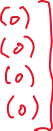 (0)
(0)
(0)
(0)